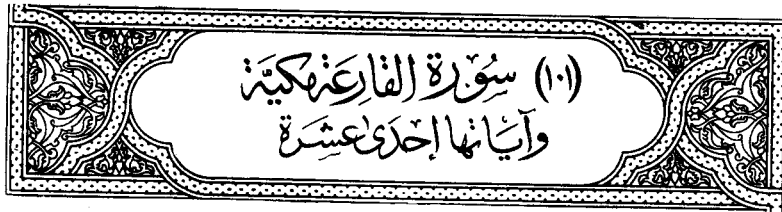 (١٠١) سُورَة القَارِعَة مَكيَّة
وَآيَاتهَا إحْدَىٰ عَشَرَة